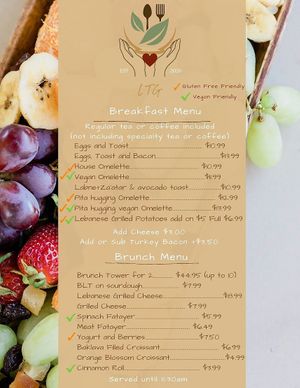 EST
2020
LTG
Gluten Free Friendly
Vegan Friendly
Breakfast Menu
Regular tea or coffee included
(not including specialty tea or coffee)
Eggs and Toast $10.99
Eggs, Toast and Bacon $13.99
House Omelette $10.99
Vegan Omelette $11.99
Labne+Za'atar & avocado toast $10.99
Pita hugging Omelette $12.99
Pita hugging vegan Omelette $13.99
Lebanese Grilled Potatoes add on $5 Full $6.99
Add Cheese $3.00
Add or Sub Turkey Bacon +$3.50
Brunch Menu
Brunch Tower for 2 $44.95 (up to 10)
BLT on sourdough $7.99
Lebanese Grilled Cheese $13.99
Grilled Cheese $7.99
Spinach Fatayer $5.99
Meat Fatayer $6.49
Yogurt and Berries $7.50
Baklava Filled Croissant $6.99
Orange Blossom Croissant $4.99
Cinnamon Roll $3.99
Served until 11:30am